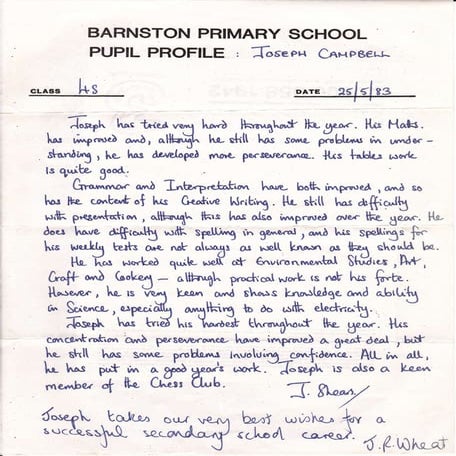 BARNSTON PRIMARY SCHOOL
PUPIL PROFILE : JOSEPH CAMPBELL
CLASS 4S DATE 25/5/83
Joseph has tried very hard throughout the year. His Maths.
has improved and, although he still has some problems in under-
standing, he has developed more perseverance. His tables work
is quite good.
Grammar and Interpretation have both improved, and so
has the content of his Creative Writing. He still has difficulty
with presentation, although this has also improved over the year. He
does have difficulty with spelling in general, and his spellings for
his weekly tests are not always as well known as they should be.
He has worked quite well at Environmental Studies, Art,
Craft and Cookery – although practical work is not his forte.
However, he is very keen and shows knowledge and ability
in Science, especially anything to do with electricity.
Joseph has tried his hardest throughout the year. His
concentration and perseverance have improved a great deal, but
he still has some problems involving confidence. All in all,
he has put in a good year's work. Joseph is also a keen
member of the Chess Club.
J. Shears
Joseph takes our very best wishes for a
successful secondary school career.
J.R. Wheat